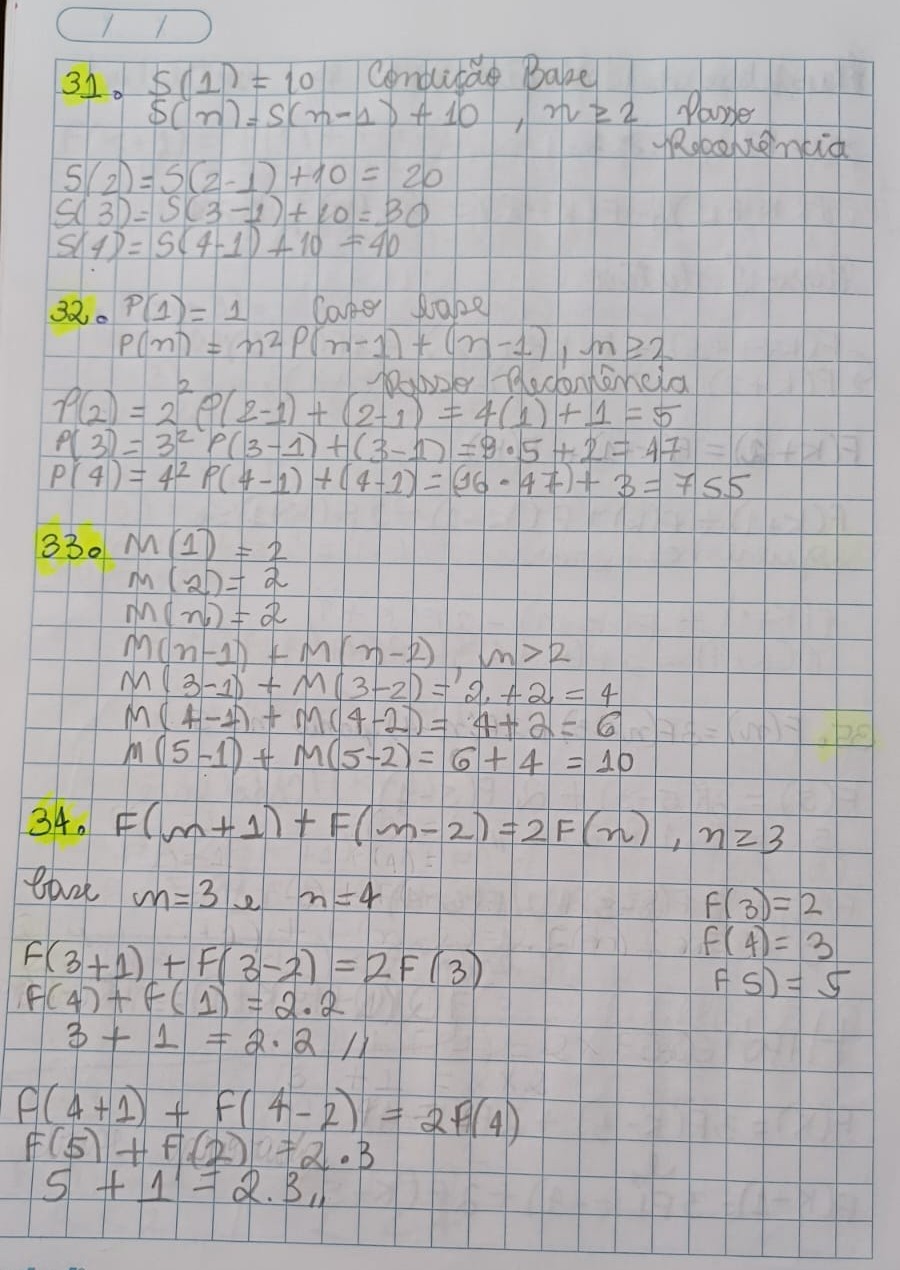 / /
31. S(1) = 10 Condição Base
S(n) = S(n-1) + 10 , n ≥ 2 Passo
Recorrência
S(2) = S(2-1) + 10 = 20
S(3) = S(3-1) + 10 = 30
S(4) = S(4-1) + 10 = 40
32. P(1) = 1 Caso base
P(n) = n² P(n-1) + (n-1), n ≥ 2
Passo Recorrência
P(2) = 2² P(2-1) + (2-1) = 4(1) + 1 = 5
P(3) = 3² P(3-1) + (3-1) = 9·5 + 2 = 47
P(4) = 4² P(4-1) + (4-1) = (16·47) + 3 = 755
33. M(1) = 2
M(2) = 2
M(n) = 2
M(n-1) + M(n-2), n > 2
M(3-1) + M(3-2) = 2 + 2 = 4
M(4-1) + M(4-2) = 4 + 2 = 6
M(5-1) + M(5-2) = 6 + 4 = 10
34. F(n+1) + F(n-2) = 2F(n), n ≥ 3
base n = 3 e n = 4
F(3) = 2
F(4) = 3
F5) = 5
F(3+1) + F(3-2) = 2F(3)
F(4) + F(1) = 2.2
3 + 1 = 2.2 //
F(4+1) + F(4-2) = 2F(4)
F(5) + F(2) = 2.3
5 + 1 = 2.3 //